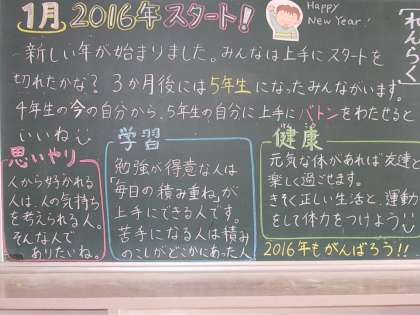 1月 2016年スタート!
Happy
New Year!
れんらく
新しい年が始まりました。みんなは上手にスタートを
切れたかな? 3か月後には5年生になったみんながいます。
4年生の今の自分から、5年生の自分に上手にバトンをわたせると
いいね
思いやり
人から好かれる
人は、人の気持ち
を考えられる人。
そんな人で
ありたいね。
学習
勉強が得意な人は
「毎日の積み重ね」が
上手にできる人です。
苦手になる人は積み
のこしがどこかにあった人
健康
元気な体があれば友達と
楽しく過ごせます。
きそく正しい生活と、運動
をして体力をつけよう
2016年もがんばろう!!